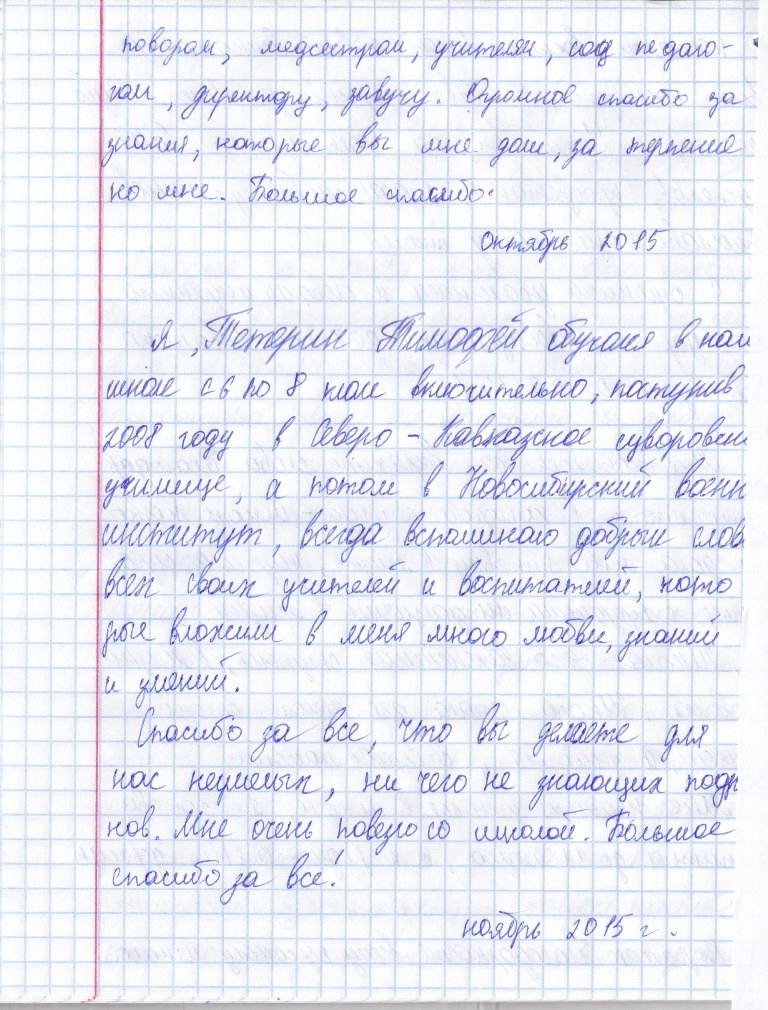 поварам, медсестрам, учителям, соц педаго-
гам, директору, завучу. Огромное спасибо за
знания, которые вы мне дали, за терпение
ко мне. Большое спасибо.
Октябрь 2015
Я, Тетерин Тимофей обучался в наш
школе с 6 по 8 класс включительно, поступив
2008 году в Северо-Кавказское суворовск
училище, а потом в Новосибирский воен
институт, всегда вспоминаю добрым слов
всех своих учителей и воспитателей, кото
рые вложили в меня много любви, знаний
и знаний.
Спасибо за все, что вы делаете для
нас неумелых, ни чего не знающих
нов. Мне очень повезло со школой. Большое
спасибо за все!
ноябрь 2015 г.